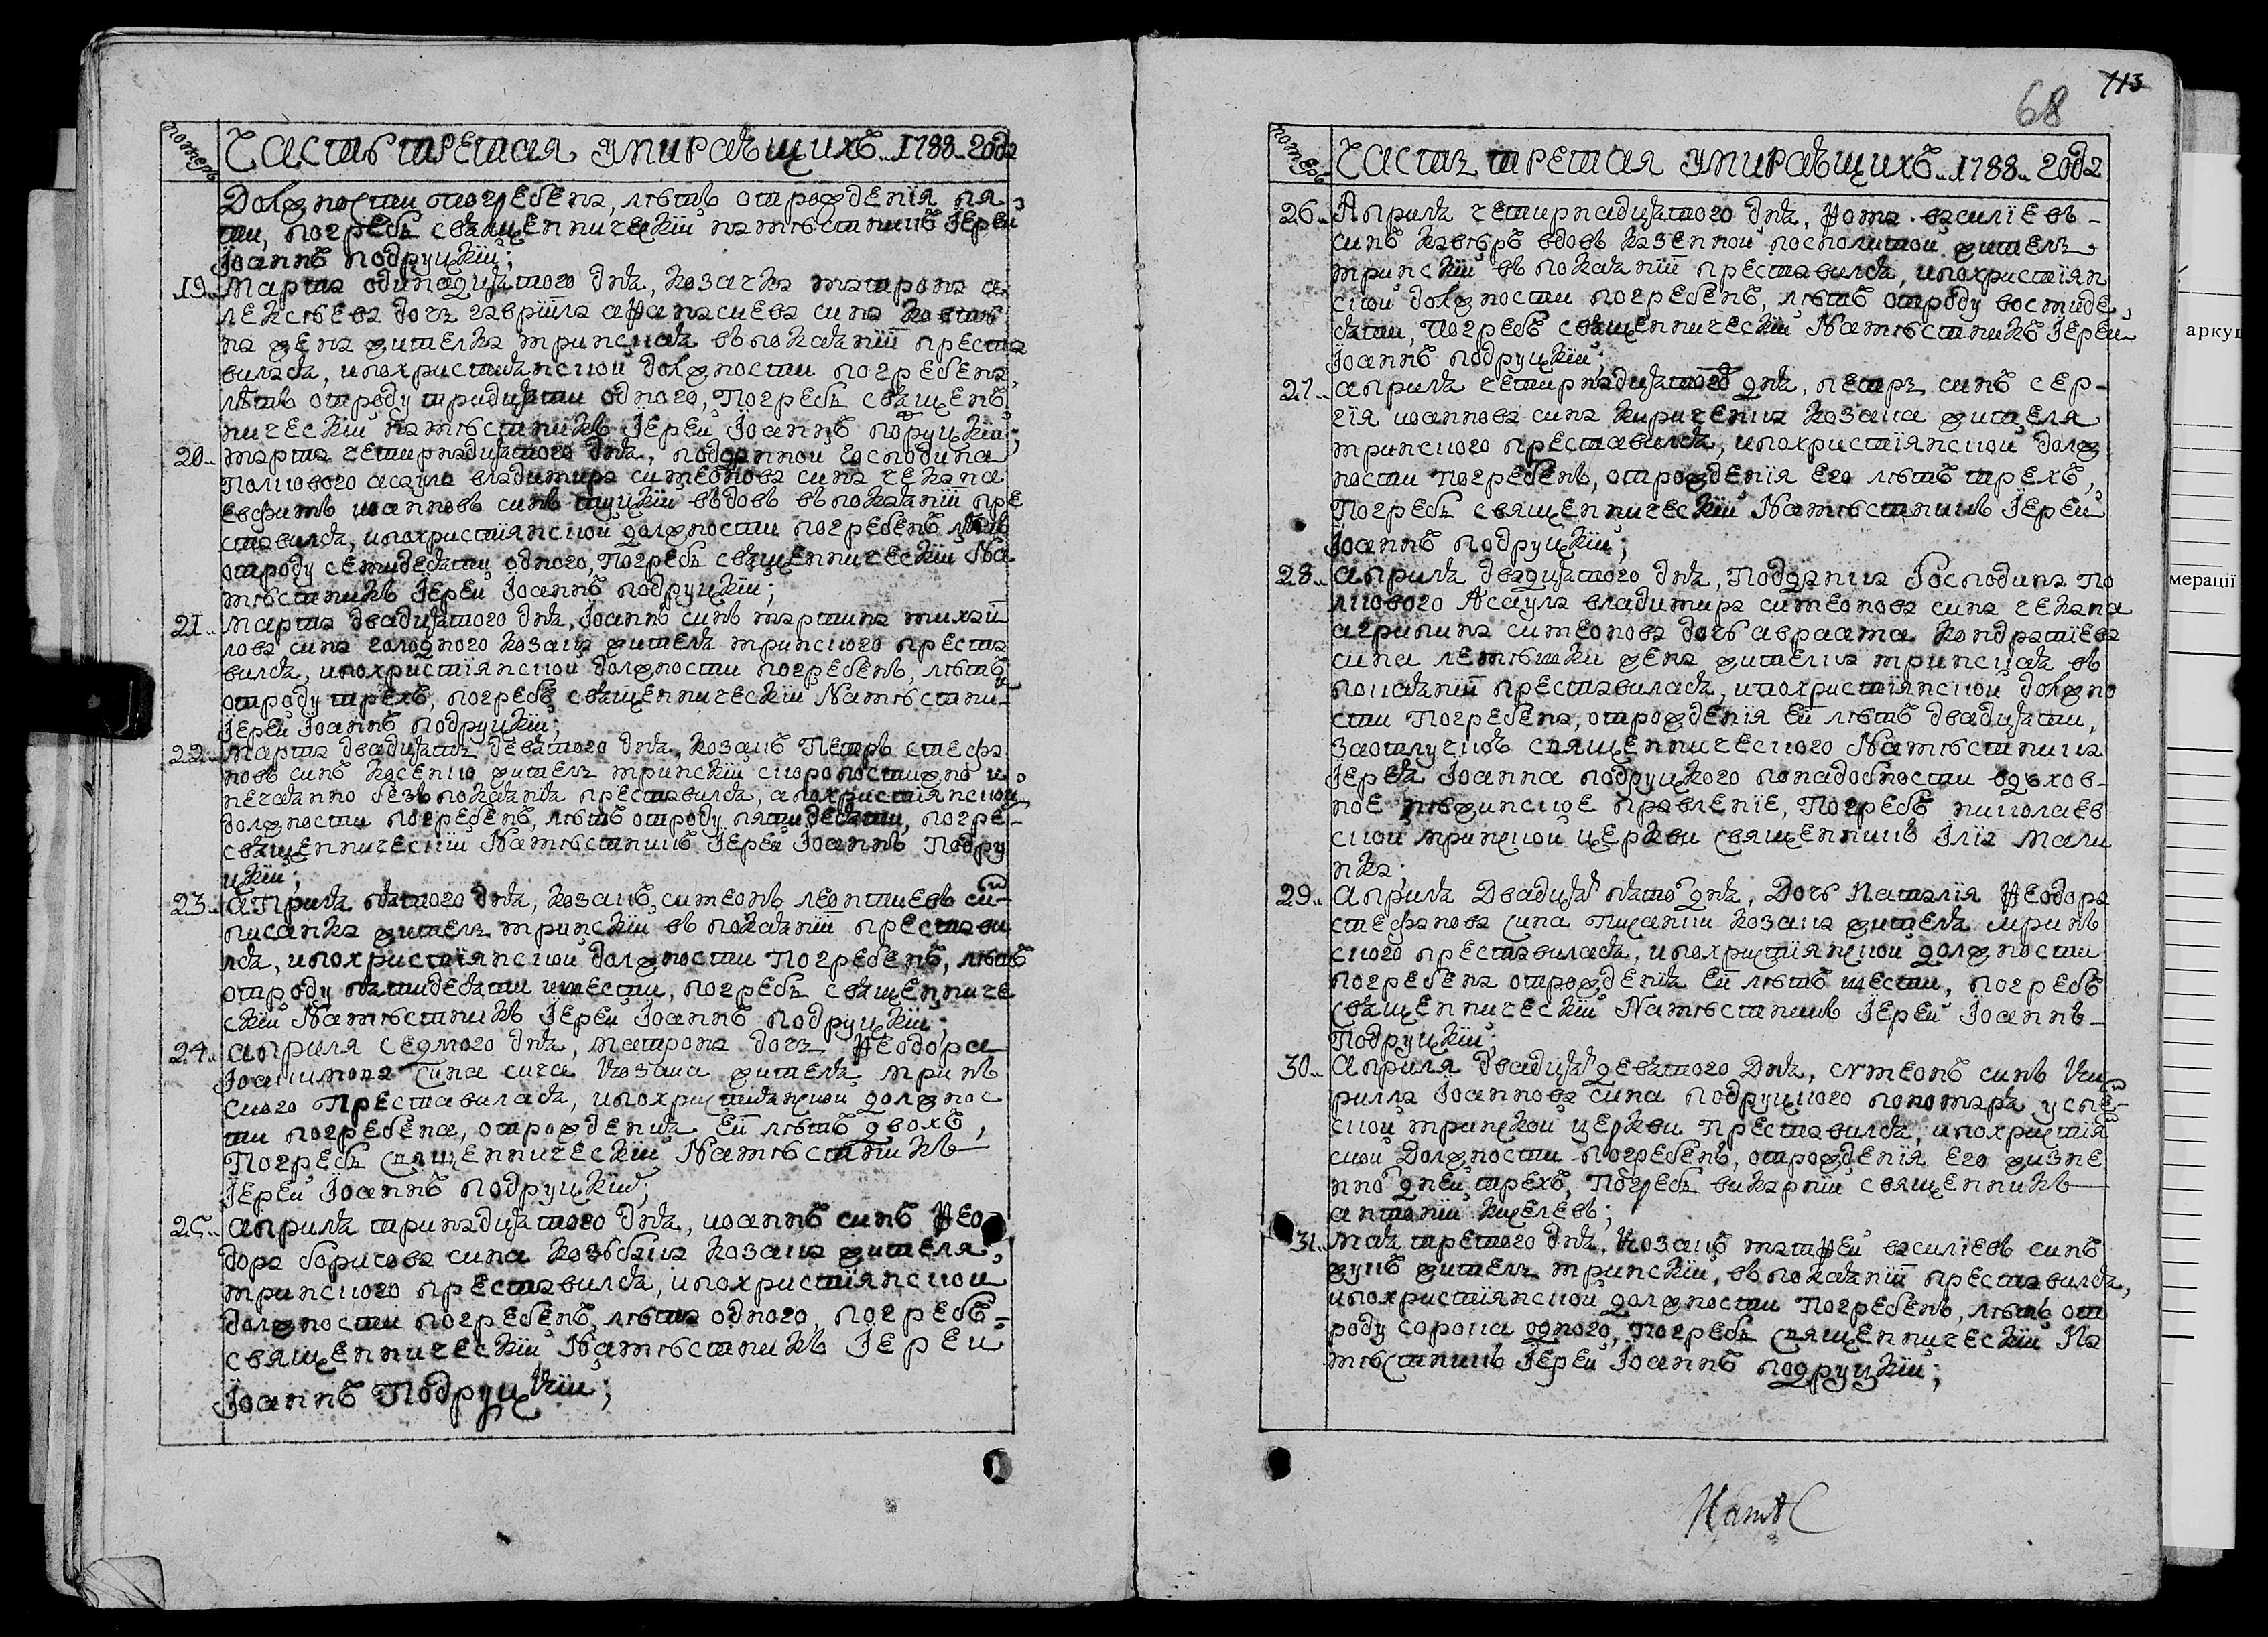 номеръ
Часть третая умираѧщихъ 1788 года
должности погребена, лѣтъ отрожденїя пя
ти, погребъ свѧщенническїй намѣстникъ Їерей
Їоаннъ Подруцкїй;
19 марта одинадцѧтого днѧ, козачка матрона а
леѯѣева дочъ гаврїила аѳанасиева сина
на жена жителка мринскаѧ въпокаѧнїи преста
виласѧ, ипохристиѧнской должности погребена,
лѣтъ отроду тридцѧти одного, Погребъ свѧщенъ
ническїй намѣстникъ Їерей Їоаннъ подруцкїй;
20 марта четирнадцѧтого днѧ, подданной господина
Полкового асаула владимира симеонова сина чекана
евфимъ иоанновъ синъ въдовъ въпокаѧнїи пре
ставилсѧ, ипохристїянской должности погребенъ, лѣтъ
отроду семидесѧти одного, Погребъ свѧщенническїй На
мѣстникъ Їерей Їоаннъ подруцкїй;
21 марта двадцѧтого днѧ, Їоаннъ синъ мартина михаи
лова сина голодного козака жителѧ мринского преста
вилсѧ, ипохристїянской должности погребенъ, лѣтъ
отроду трехъ, погребъ свѧщенническїй Намѣстни
Їерей Їоаннъ подруцкїй;
22 марта двадцѧть девѧтого днѧ, козакъ Петръ стефа
новъ синъ косенко житель мринскїй скоропостижно и
нечаѧнно безъ покаѧнїѧ преставилсѧ, апохристїянской
должности погребенъ, лѣтъ отроду пятидесѧти, погре
свѧщенническїй Намѣстникъ Їерей Їоаннъ Подру
цкїй;
23 априлѧ пѧтого днѧ, козакъ симеонъ леонтиевъ си
писанка житель мринскїй въ покаѧнїи престави
лсѧ, ипохристїянской должности Погребенъ, лѣтъ
отроду пѧтидесѧти шести, погребъ свѧщенниче
скїй Намѣстникъ Їерей Їоаннъ подруцкїй;
24 априля седмого днѧ, матрона дочъ Ѳеодора
Їоакимова сина сича козака жителѧ мринъ
ского Преставиласѧ, ипохристиѧнской должнос
ти погребена, отрожденїѧ еи лѣтъ двохъ,
Погребъ священническїй Намѣстникъ
Їерей Їоаннъ подруцкїй;
25 априлѧ тринадцѧтого днѧ, иоаннъ синъ Ѳео
дора борисова сина козака жителя
мринского преставилсѧ, ипохристїянской
должности погребенъ, лѣта одного, погребъ
священническїй Намѣстникъ Їерей
Їоаннъ Подруцкїй;
68
113
номеръ
Часть третая умираѧщихъ 1788 года
26 Априлѧ четирнадцѧтого днѧ, Ѳома василїевъ
синъ вдовъ казенной посполитой житель
мринскїй въ покаѧнїи преставилсѧ, ипохристїян
ской должности погребенъ, лѣтъ отроду восмиде
сѧти, Погребъ свѧщенническїй Намѣстникъ Їерей
Їоаннъ подруцкїй;
27 априлѧ четирнадцѧтого днѧ, петръ синъ сер
гїя иоаннова сина кириченка козака жителя
мринского преставилсѧ, ипохристїянской долж
ности Погребенъ, отрожденїя его лѣтъ трехъ,
Погребъ священническїй Намѣстникъ Їерей
Їоаннъ подруцкїй;
28 априлѧ двадцѧтого днѧ, Подданка Господина По
лкового Асаула владимира симеонова сина чекана
агрипина симеонова дочъ авраама кондратїева
сина лемѣшки жена жителка мринскаѧ въ
покаѧнїи преставиласѧ, ипохристїянской должно
сти Погребена, отрожденїя еи лѣтъ двадцѧти,
заотлучкоѧ священнического Намѣстника
Їереѧ Їоанна подруцкого понадобности вдухов
ное нѣжинское правленїе, Погребъ николаев
ской мринской церкви священникъ Їлїа Мали
нка;
29 Априлѧ Двадцѧть пѧто днѧ, Дочъ Наталїя Ѳеодора
стефанова сина козака жителѧ мринъ
ского преставиласѧ, ипохристїянской должности
погребена отрожденїѧ еи лѣтъ шести, погребъ
свѧщенническїй Намѣстникъ Їерей Їоаннъ
Подруцкїй;
30 Априля двадцѧть девѧтого Днѧ, сѵмеонъ синъ Ки
рилла Їоаннова сина подруцкого пономарѧ успе
ской мринской церкви Преставилсѧ, ипохристїя
ской Должности погребенъ, отрожденїя его жизне
нно дней трехъ, Погребъ викарнїй священникъ
антонїй
31 маѧ третого днѧ, козакъ матѳей василїевъ синъ
жукъ житель мринскїй, въ покаѧнїи преставилсѧ,
ипохристїянской должности Погребенъ, лѣтъ от
роду сорока одного, Погребъ священническїй На
мѣстникъ Їерей Їоаннъ подруцкїй;
аркуш
мерації